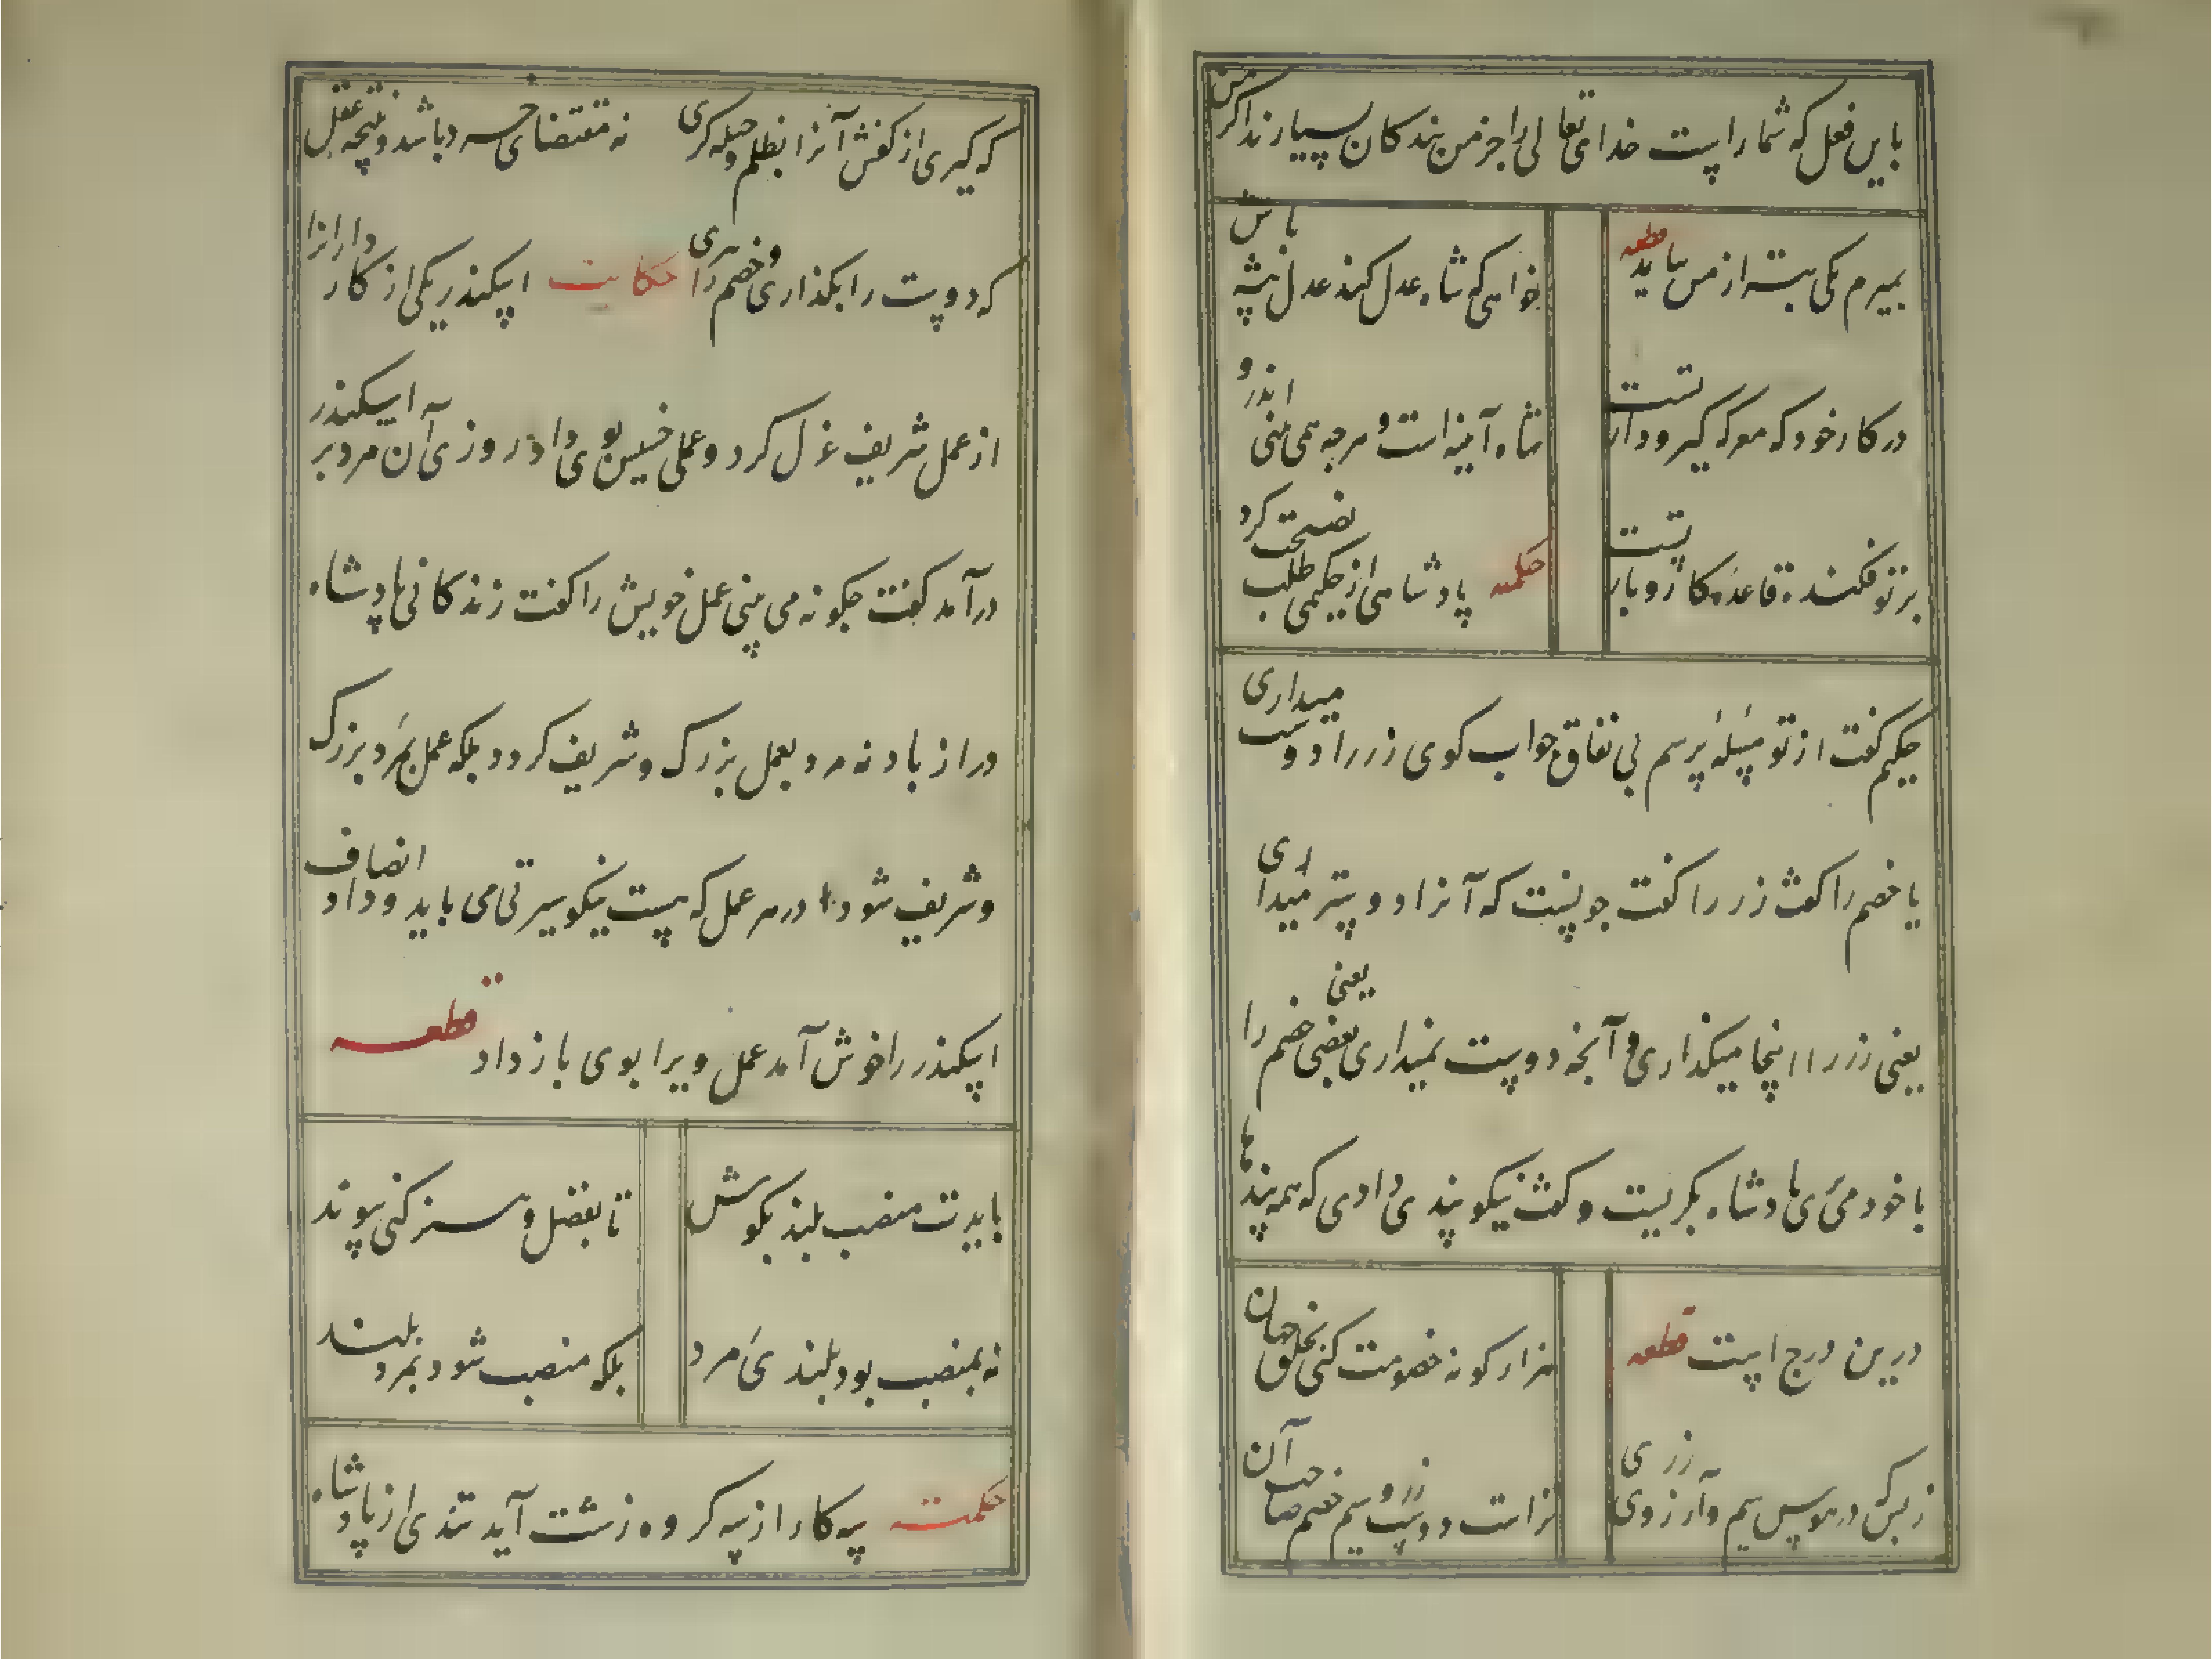 باین فعل که شما راست خدای تعالی را جز من بندکان بسیارند اکر من
بمیرم یکی بهتر از من بیاید قطعه خواهی که شاه عدل کند عدل پیشه باش
در کار خود که معرکه کیر و دار تست شاه آینه است و هرچه همی بینی اندرو
برتو فکنده قاعدهٔ کار و بار تست حکمه پادشاهی از حکیمی نصیحت طلب کرد
حکیم کفت از تو مسئلهٔ پرسم بی نفاق جواب کوی زر را دوست میداری
یا خصم را کفت زر را کفت چونست که آنرا دوستر میداری
یعنی زر را اینجا میکذاری و آنچه دوست نمیداری یعنی خصم را
با خود می بری پادشاه بکریست و کفت نیکو پندی دادی که همه پندها
درین درج است قطعه هزار کونه خصومت کنی بخلق جهان
زبس که در هوس سیم و آرزوی زری تراست دوست زر و سیم خصم صاحب آن
که کیری از کفش آنرا بظلم و حیله کری نه مقتضای خرد باشد و نتیجه عقل
که دوست را بکذاری و خصم را ببری حکایت اسکندر یکی از کارداران را
از عمل شریف عزل کرد و عملی خسیس بوی داد روزی آن مرد بر اسکندر
درآمد کفت چکونه می بینی عمل خویش را کفت زندکانی پادشاه
دراز باد نه مرد بعمل بزرک و شریف کردد بلکه عمل بمرد بزرک
و شریف شود در هر عمل که هست نیکو سیرتی می باید و داد و انصاف
اسکندر را خوش آمد عمل ویرا بوی باز داد قطعه
بایدت منصب بلند بکوش تا بفضل و هنر کنی پیوند
نه بمنصب بود بلندی مرد بلکه منصب شود بمرد بلند
حکمت سه کار از سه کروه زشت آید تندی از پادشاه